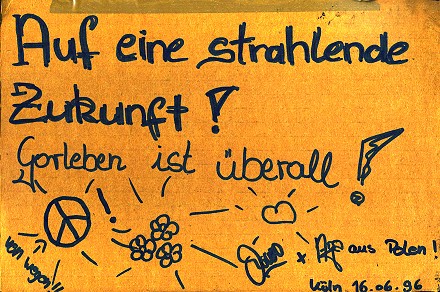 Auf eine strahlende
Zukunft!
Gorleben ist überall!
!
von wegen!!
x Aga aus Polen!
Köln, 16.06.96